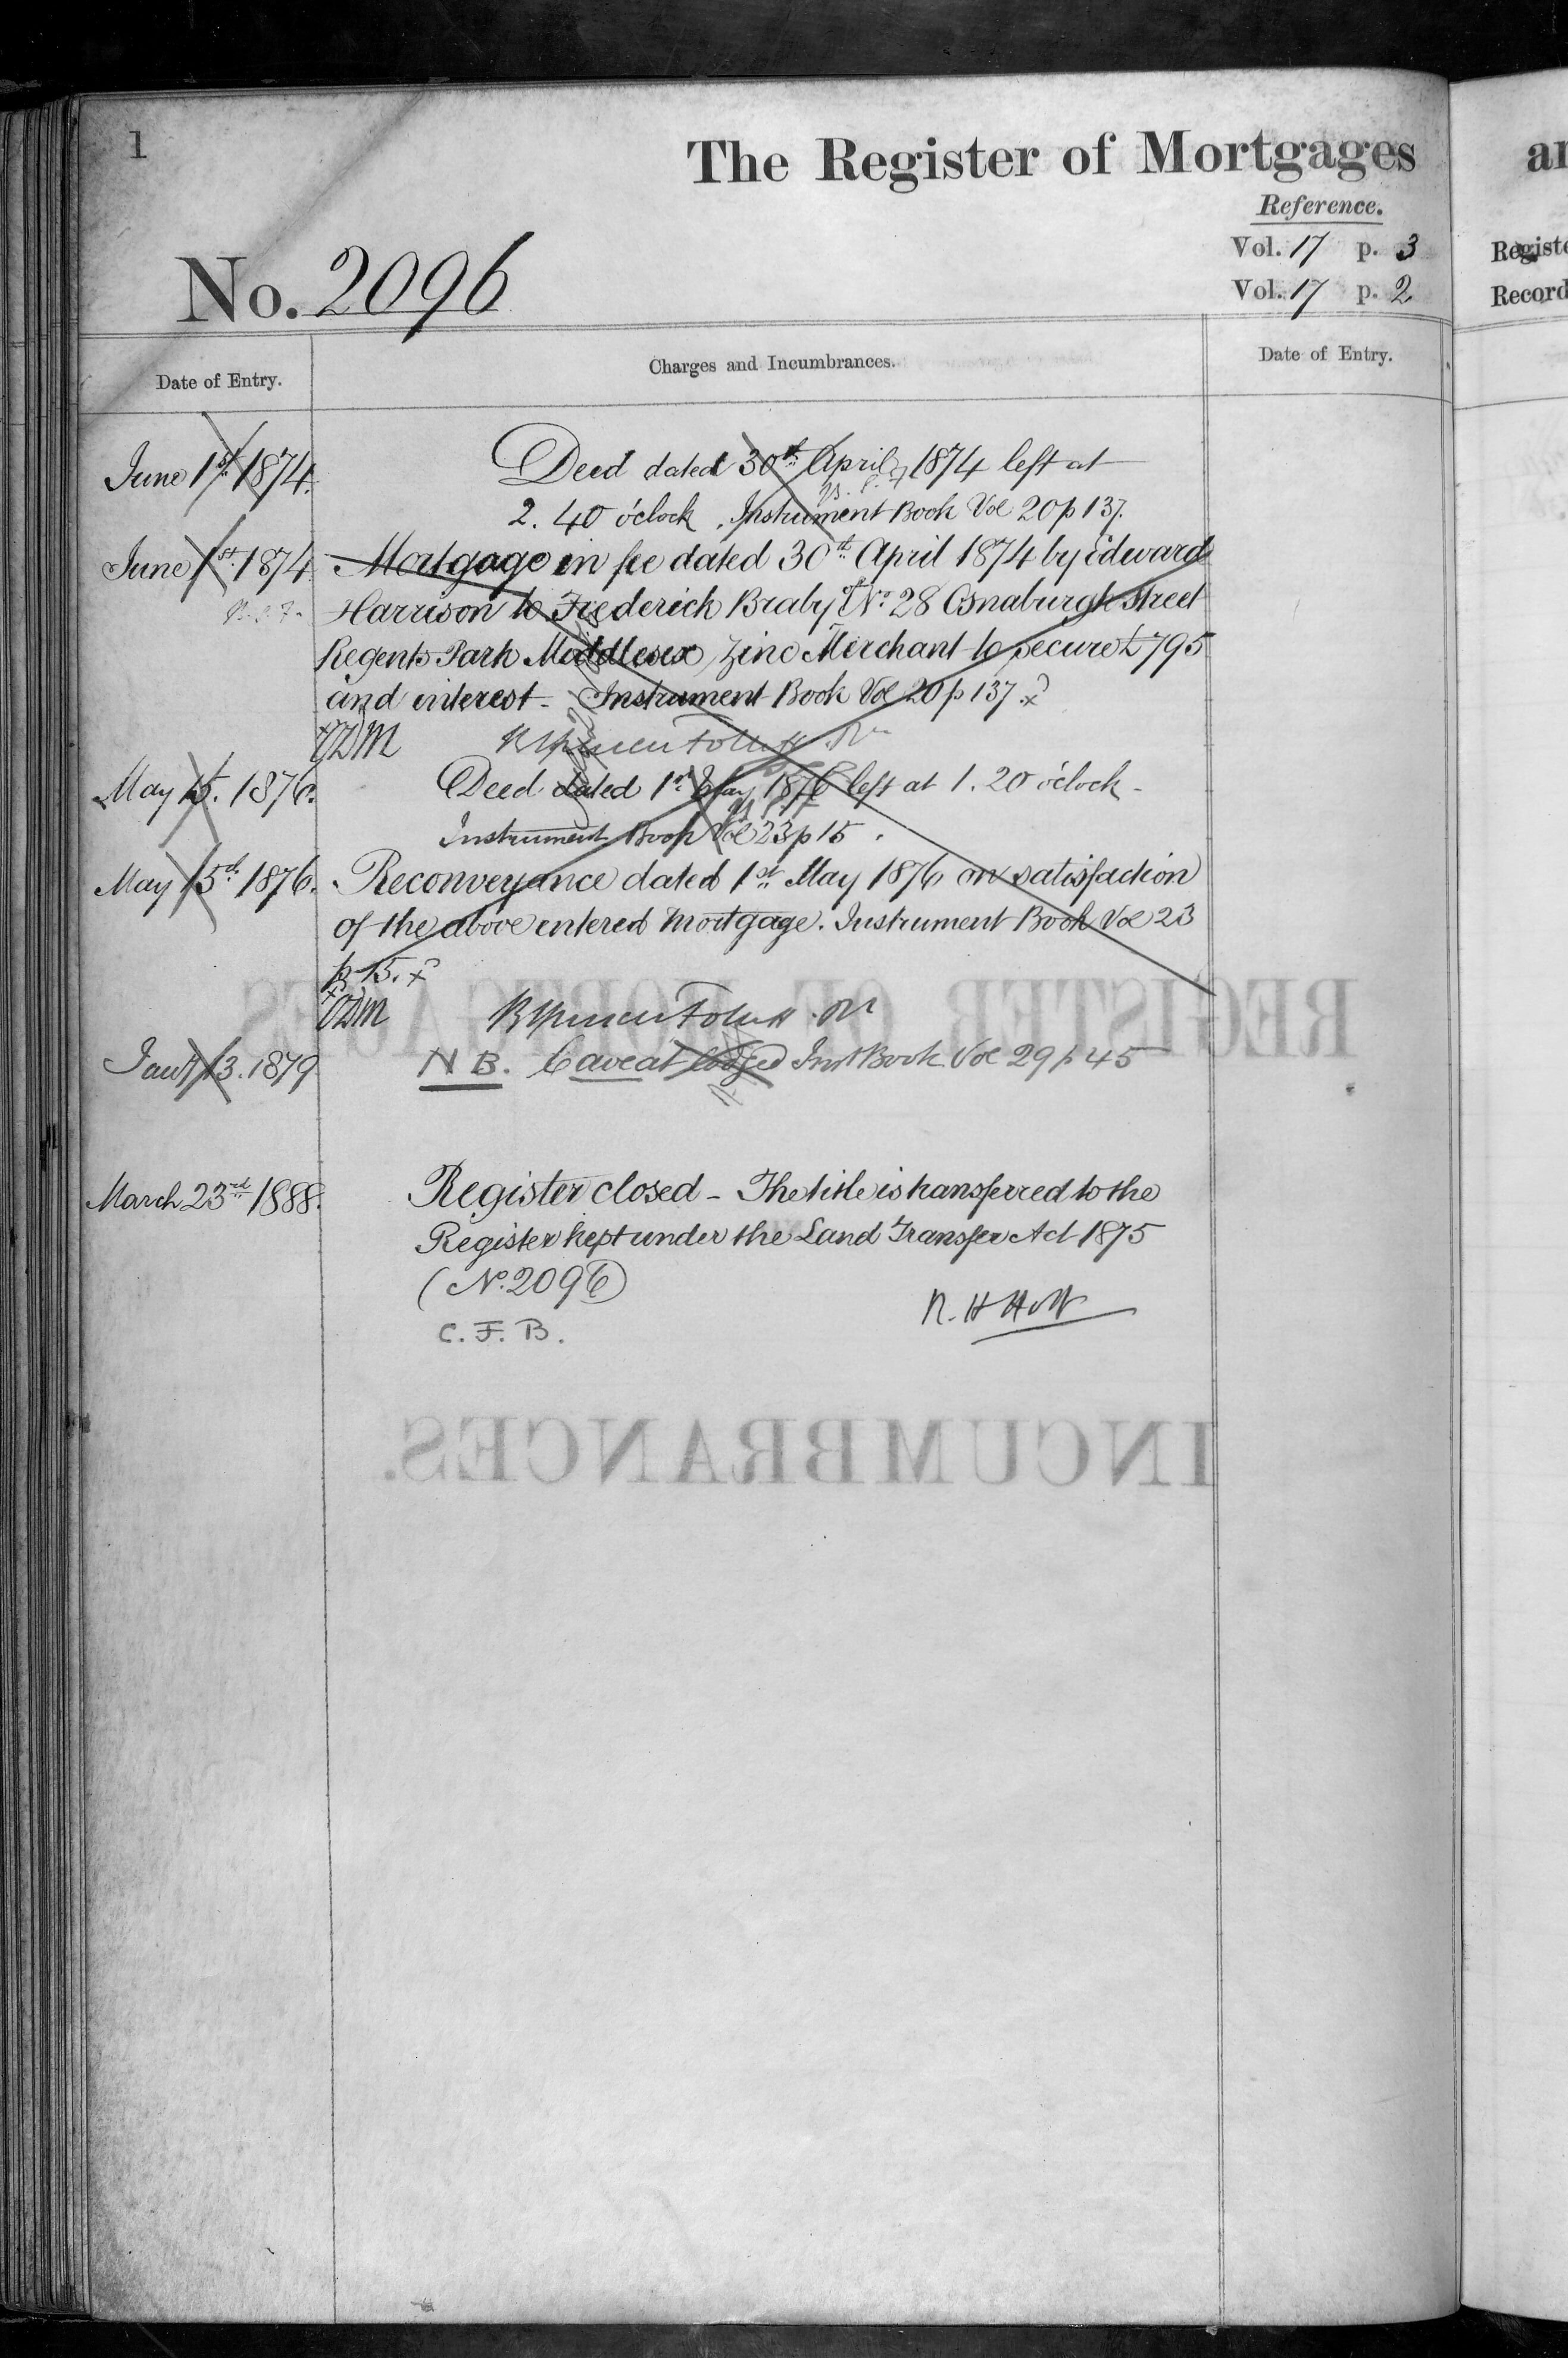 1
The Register of Mortgages
Reference.
Vol. 17 p. 3
Vol. 17 p. 2
No. 2096
Date of Entry.
Charges and Incumbrances.
Date of Entry.
June 1st 1874.
Deed dated 30th April 1874 left at
2. 40 o'clock. Instrument Book Vol 20 p 137.
June 1st 1874
Mortgage in fee dated 30th April 1874 by Edward
Harrison to Frederick Braby of No. 28 Osnaburgh Street
Regents Park Middlesex, Zinc Merchant to secure £795
and interest - Instrument Book Vol 20 p 137.
May 15. 1876.
Deed dated 1st May 1876 left at 1. 20 o'clock -
Instrument Book Vol 23 p 15.
May 15th 1876.
Reconveyance dated 1st May 1876 on satisfaction
of the above entered mortgage. Instrument Book Vol 23
p. 15.
Jany 13. 1879
N B. Caveat lodged Inst Book Vol 29 p 45
March 23rd 1888.
Register closed - The title is transferred to the
Register kept under the Land Transfer Act 1875
(No. 2096)
C. F. B.
R. H Holt
REGISTER OF MORTGAGES
INCUMBRANCES.
Registe
Record